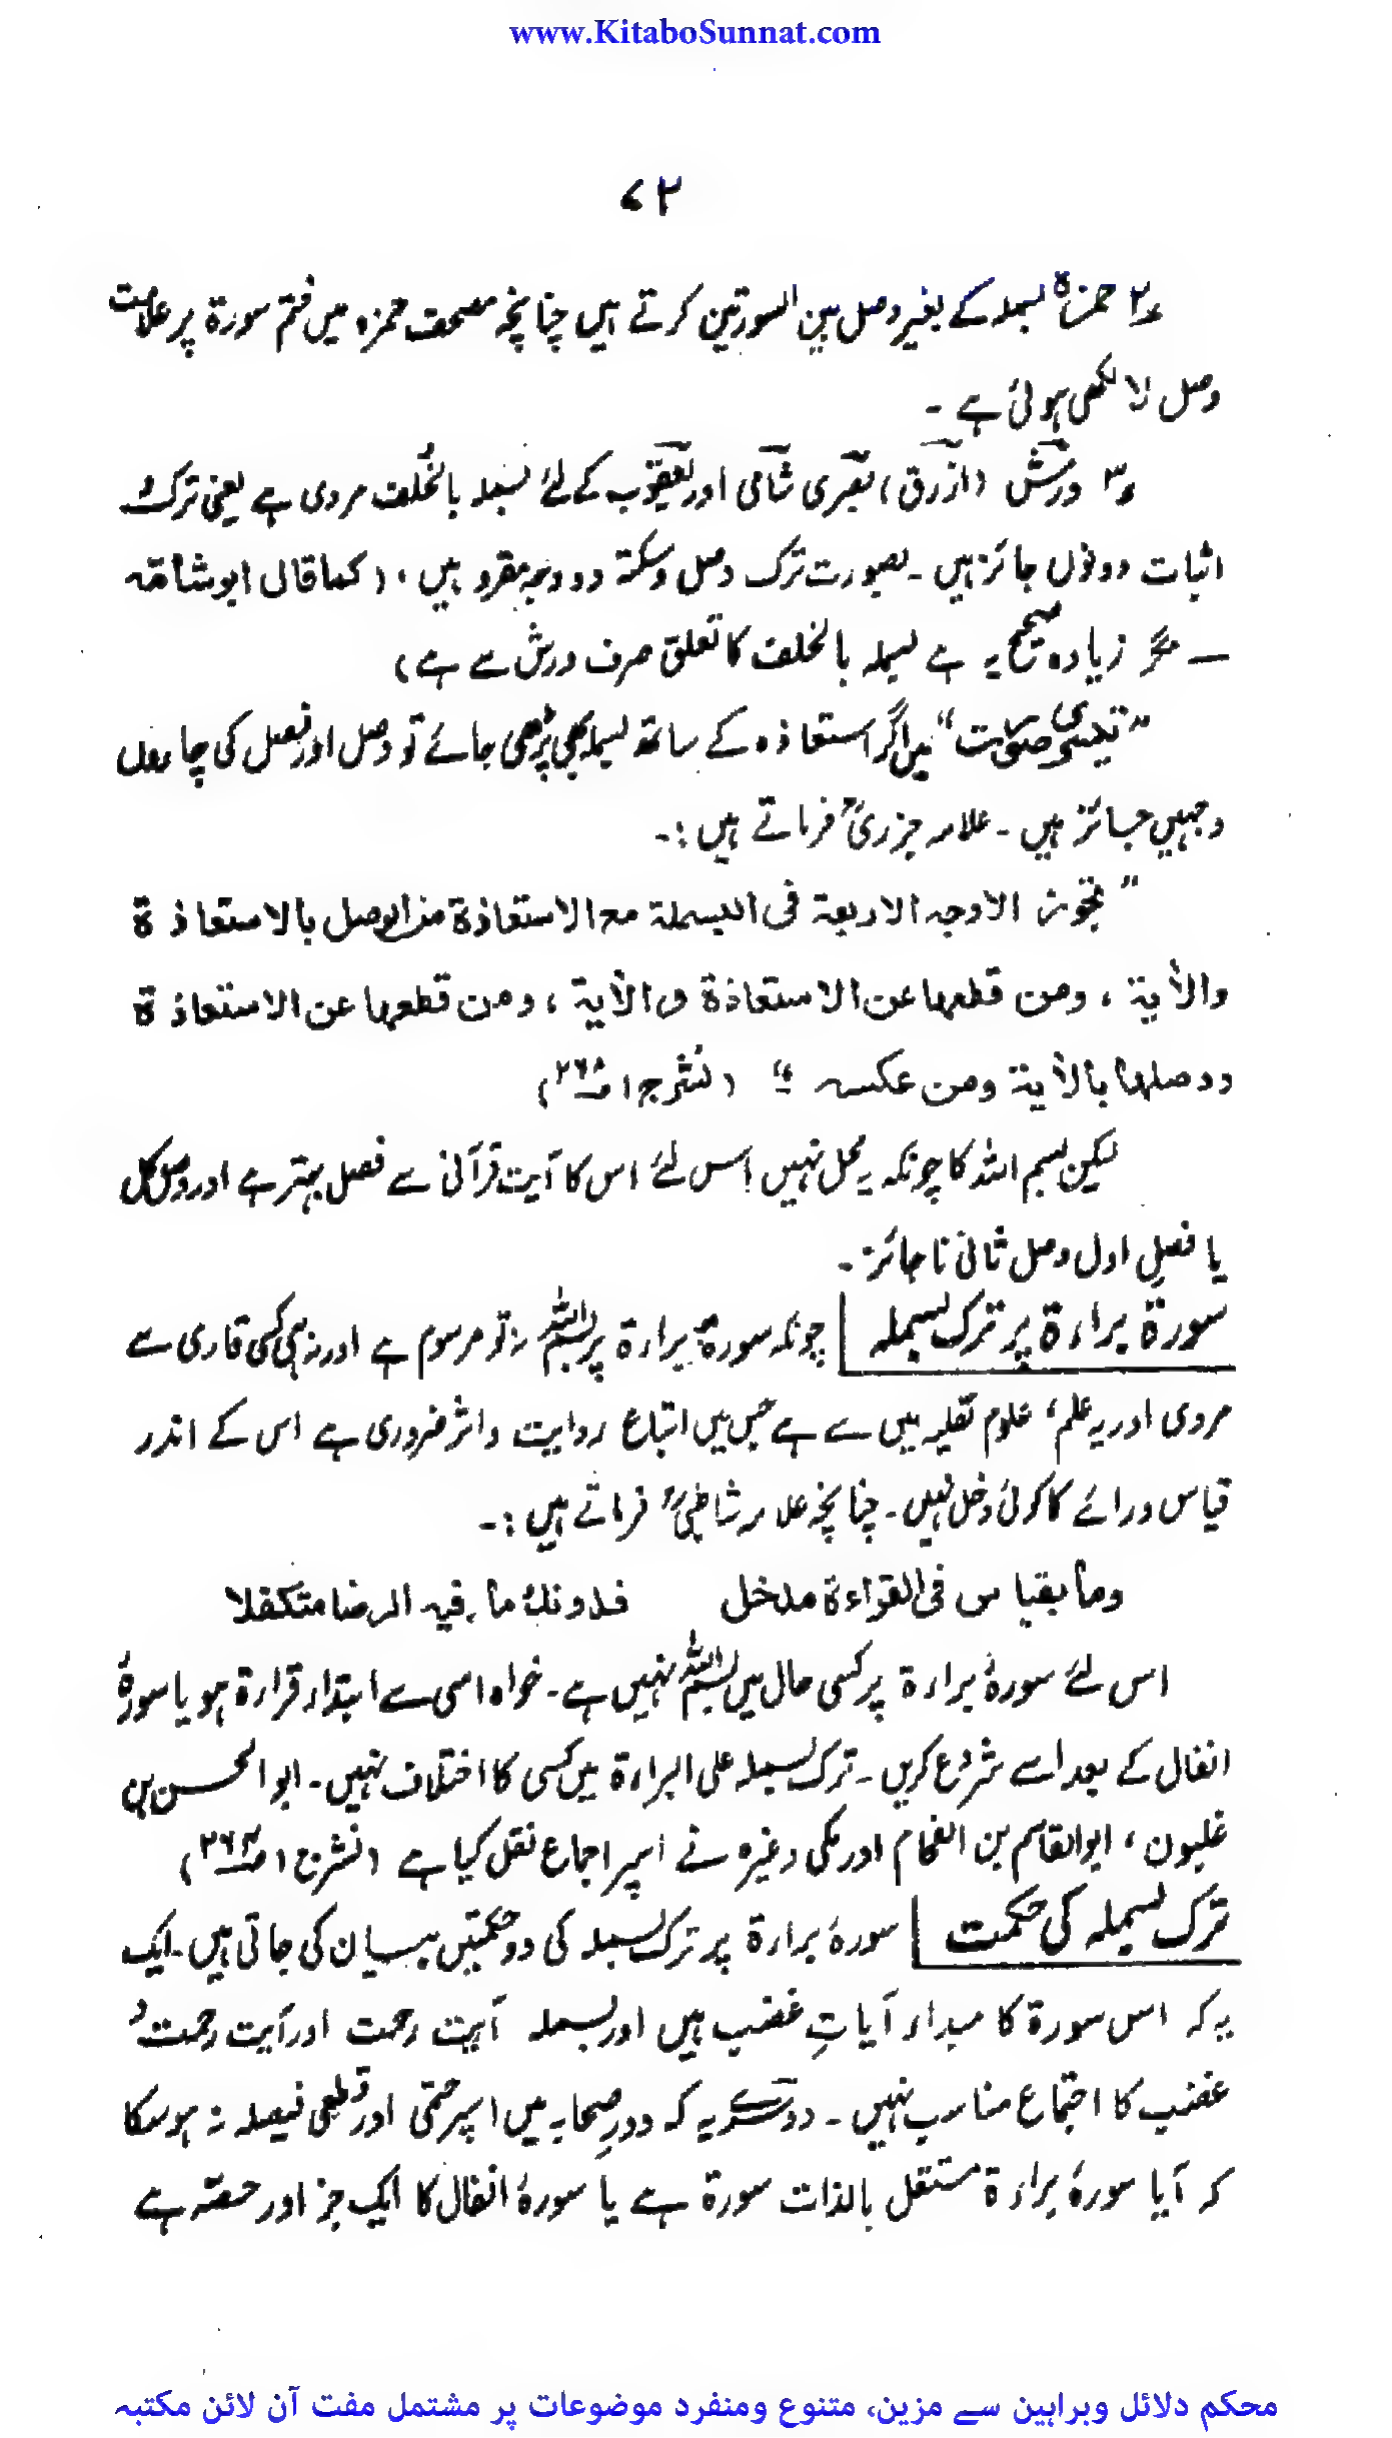 www.KitaboSunnat.com
۷۲
۲؎ حمزہؒ بسملہ کے بغیر وصل بین السورتین کرتے ہیں چنانچہ مصحف حمزہ میں ختم سورۃ پر علامت
وصل لا لکھی ہوئی ہے ۔
۳؎ ورش (ازرق) بصری شامی اور یعقوب کے لئے بسملہ بالخُلف مروی ہے یعنی ترک و
اثبات دونوں جائز ہیں ۔ بصورت ترک وصل و سکتہ دو وجہ مقرو ہیں ، (کما قال ابوشامہ
— مگر زیادہ صحیح یہ ہے بسملہ بالخلف کا تعلق صرف ورش سے ہے)
”تیسری صورت“ میں اگر استعاذہ کے ساتھ بسملہ بھی پڑھی جائے تو وصل اور فصل کی چاروں
وجہیں جائز ہیں ۔ علامہ جزریؒ فرماتے ہیں :۔
” تجوز الاوجہ الاربعۃ فی البسملۃ مع الاستعاذۃ من الوصل بالاستعاذۃ
والأیۃ ، ومن قطعہا عن الاستعاذۃ والأیۃ ، ومن قطعہا عن الاستعاذۃ
ووصلہا بالأیۃ ومن عکسہ “ (نشر ج ۱ ص۲۶۸)
لیکن بسم اللہ کا چونکہ یہ محل نہیں اس لئے اس کا آیت قرآنی سے فصل بہتر ہے اور وصل کل
یا فصلِ اول وصل ثانی ناجائز ۔
سورۃ براءۃ پر ترک بسملہ | چونکہ سورۂ براءۃ پر بسم اللہ نہ تو مرسوم ہے اور نہ ہی کسی قاری سے
مروی اور یہ علم، علوم نقلیہ میں سے ہے جس میں اتباع روایت واثر ضروری ہے اس کے اندر
قیاس ورائے کا کوئی دخل نہیں ۔ چنانچہ علامہ شاطبیؒ فرماتے ہیں :۔
وما بقیاس فی القراءۃ مدخل فدونک ما فیہ الرضا متکفلا
اس لئے سورۂ براءۃ پر کسی حال میں بسم اللہ نہیں ہے ۔ خواہ اسی سے ابتداء قراءۃ ہو یا سورۂ
انفال کے بعد اسے شروع کریں ۔ ترک بسملہ علی البراءۃ میں کسی کا اختلاف نہیں ۔ ابو الحسن بن
غلبون ، ابوالقاسم بن الفحام اور مکی وغیرہ نے اسپر اجماع نقل کیا ہے (نشر ج ۱ ص۲۶۴)
ترک بسملہ کی حکمت | سورۂ براءۃ پر ترک بسملہ کی دو حکمتیں بیان کی جاتی ہیں ۔ ایک
یہ کہ اس سورۃ کا مبداء آیاتِ غضب ہیں اور بسملہ آیت رحمت اور آیت رحمت و
غضب کا اجتماع مناسب نہیں ۔ دوسرے یہ کہ دورِ صحابہ میں اسپر حتمی اور قطعی فیصلہ نہ ہو سکا
کہ آیا سورۂ براءۃ مستقل بالذات سورۃ ہے یا سورۂ انفال کا ایک جز اور حصّہ ہے
محکم دلائل وبراہین سے مزین، متنوع ومنفرد موضوعات پر مشتمل مفت آن لائن مکتبہ